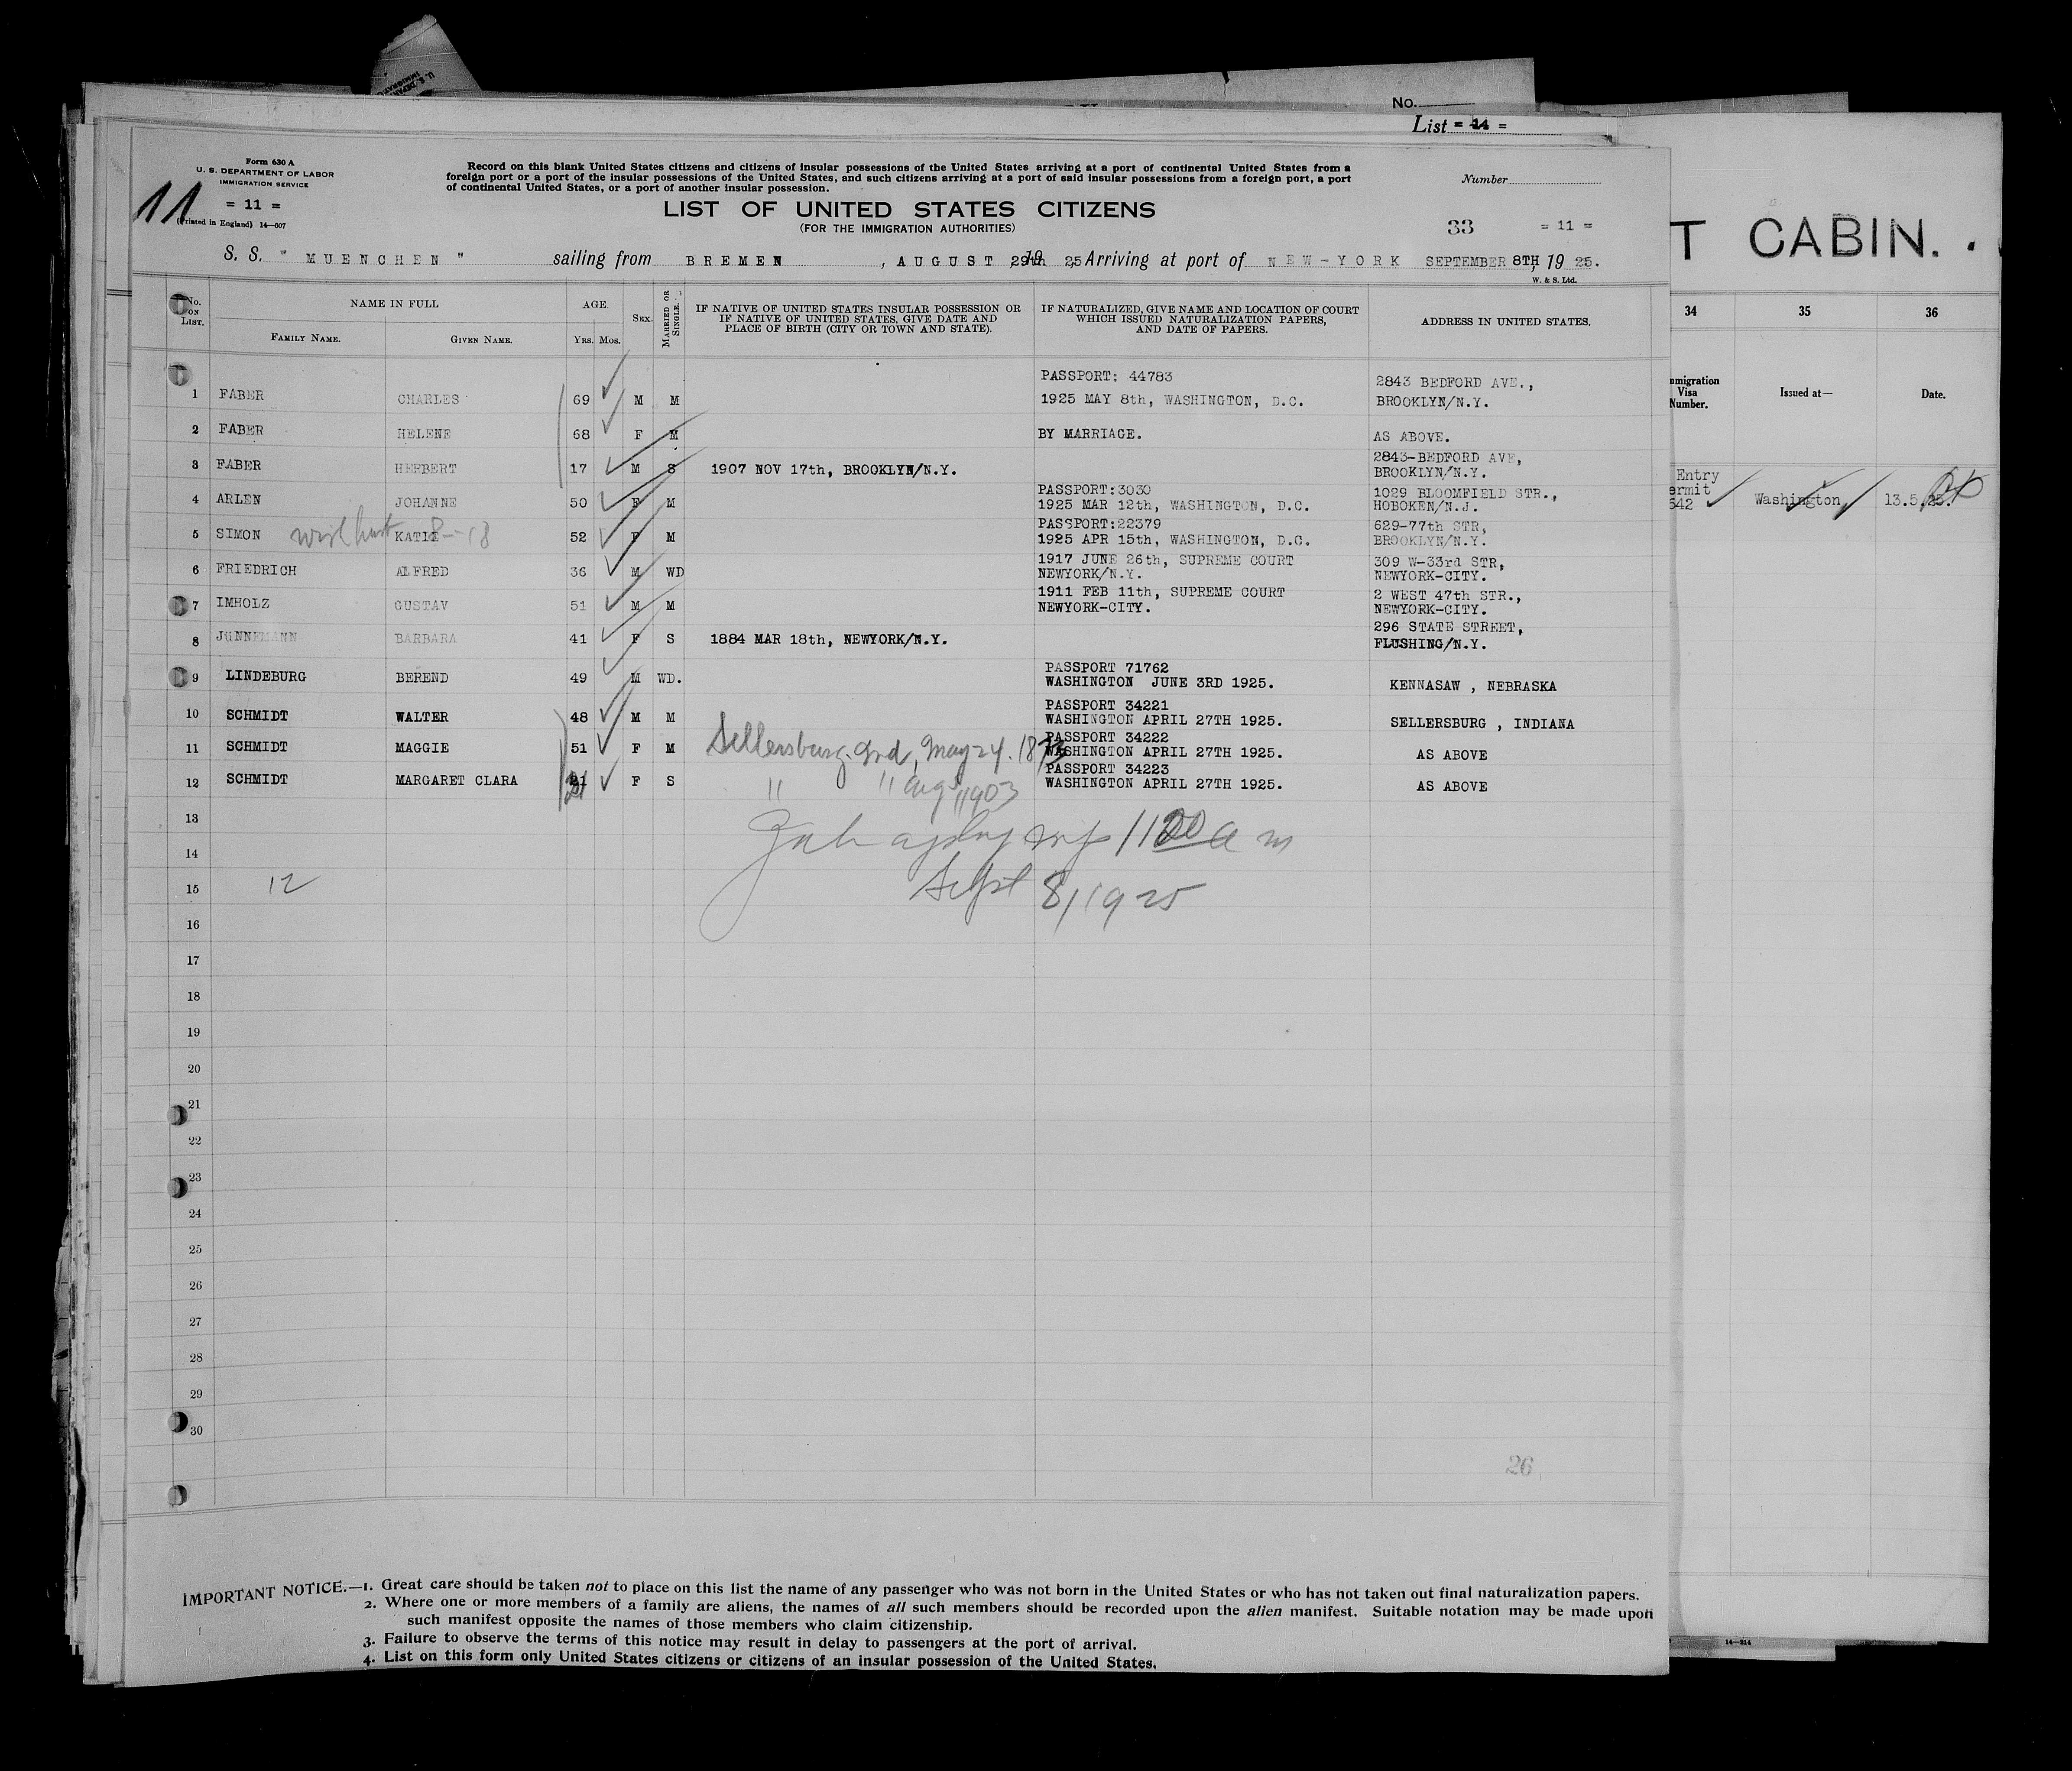 No.
List = 14 =
Form 630 A
U. S. DEPARTMENT OF LABOR
IMMIGRATION SERVICE
= 11 =
11
(Printed in England) 14—607
Record on this blank United States citizens and citizens of insular possessions of the United States arriving at a port of continental United States from a
foreign port or a port of the insular possessions of the United States, and such citizens arriving at a port of said insular possessions from a foreign port, a port
of continental United States, or a port of another insular possession.
Number
LIST OF UNITED STATES CITIZENS
(FOR THE IMMIGRATION AUTHORITIES)
33 = 11 =
S. S. "MUENCHEN" sailing from BREMEN, AUGUST 29th 19 25, Arriving at port of NEW-YORK SEPTEMBER 8TH, 19 25.
W. & S. Ltd.
No. ON LIST.
NAME IN FULL
FAMILY NAME.
GIVEN NAME.
AGE.
YRS. MOS.
SEX.
MARRIED OR SINGLE.
IF NATIVE OF UNITED STATES INSULAR POSSESSION OR
IF NATIVE OF UNITED STATES, GIVE DATE AND
PLACE OF BIRTH (CITY OR TOWN AND STATE).
IF NATURALIZED, GIVE NAME AND LOCATION OF COURT
WHICH ISSUED NATURALIZATION PAPERS,
AND DATE OF PAPERS.
ADDRESS IN UNITED STATES.
PASSPORT: 44783 2843 BEDFORD AVE.,
1 FABER CHARLES 69 M M 1925 MAY 8th, WASHINGTON, D.C. BROOKLYN/N.Y.
2 FABER HELENE 68 F M BY MARRIAGE. AS ABOVE.
2843-BEDFORD AVE,
3 FABER HERBERT 17 M S 1907 NOV 17th, BROOKLYN/N.Y. BROOKLYN/N.Y.
PASSPORT:3030 1029 BLOOMFIELD STR.,
4 ARLEN JOHANNE 50 F M 1925 MAR 12th, WASHINGTON, D.C. HOBOKEN/N.J.
PASSPORT:22379 629-77th STR,
5 SIMON KATIE 52 F M 1925 APR 15th, WASHINGTON, D.C. BROOKLYN/N.Y.
1917 JUNE 26th, SUPREME COURT 309 W-33rd STR,
6 FRIEDRICH ALFRED 36 M WD NEWYORK/N.Y. NEWYORK-CITY.
1911 FEB 11th, SUPREME COURT 2 WEST 47th STR.,
7 IMHOLZ GUSTAV 51 M M NEWYORK-CITY. NEWYORK-CITY.
296 STATE STREET,
8 JÜNNEMANN BARBARA 41 F S 1884 MAR 18th, NEWYORK/N.Y. FLUSHING/N.Y.
PASSPORT 71762
9 LINDEBURG BEREND 49 M WD. WASHINGTON JUNE 3RD 1925. KENNASAW , NEBRASKA
PASSPORT 34221
10 SCHMIDT WALTER 48 M M WASHINGTON APRIL 27TH 1925. SELLERSBURG , INDIANA
PASSPORT 34222
11 SCHMIDT MAGGIE 51 F M Sellersburg, Ind, May 24. 1873 WASHINGTON APRIL 27TH 1925. AS ABOVE
PASSPORT 34223
12 SCHMIDT MARGARET CLARA 21 F S " " Aug 1903 WASHINGTON APRIL 27TH 1925. AS ABOVE
13
1100 a m
14
15 12 Sept 8/1925
16
17
18
19
20
21
22
23
24
25
26
27
28
29
30
26
IMPORTANT NOTICE.—1. Great care should be taken not to place on this list the name of any passenger who was not born in the United States or who has not taken out final naturalization papers.
2. Where one or more members of a family are aliens, the names of all such members should be recorded upon the alien manifest. Suitable notation may be made upon
such manifest opposite the names of those members who claim citizenship.
3. Failure to observe the terms of this notice may result in delay to passengers at the port of arrival.
4. List on this form only United States citizens or citizens of an insular possession of the United States.
T CABIN.
34 35 36
mmigration Visa Number.
Issued at—
Date.
Entry
ermit
542 Washington, 13.5.25.
14—214